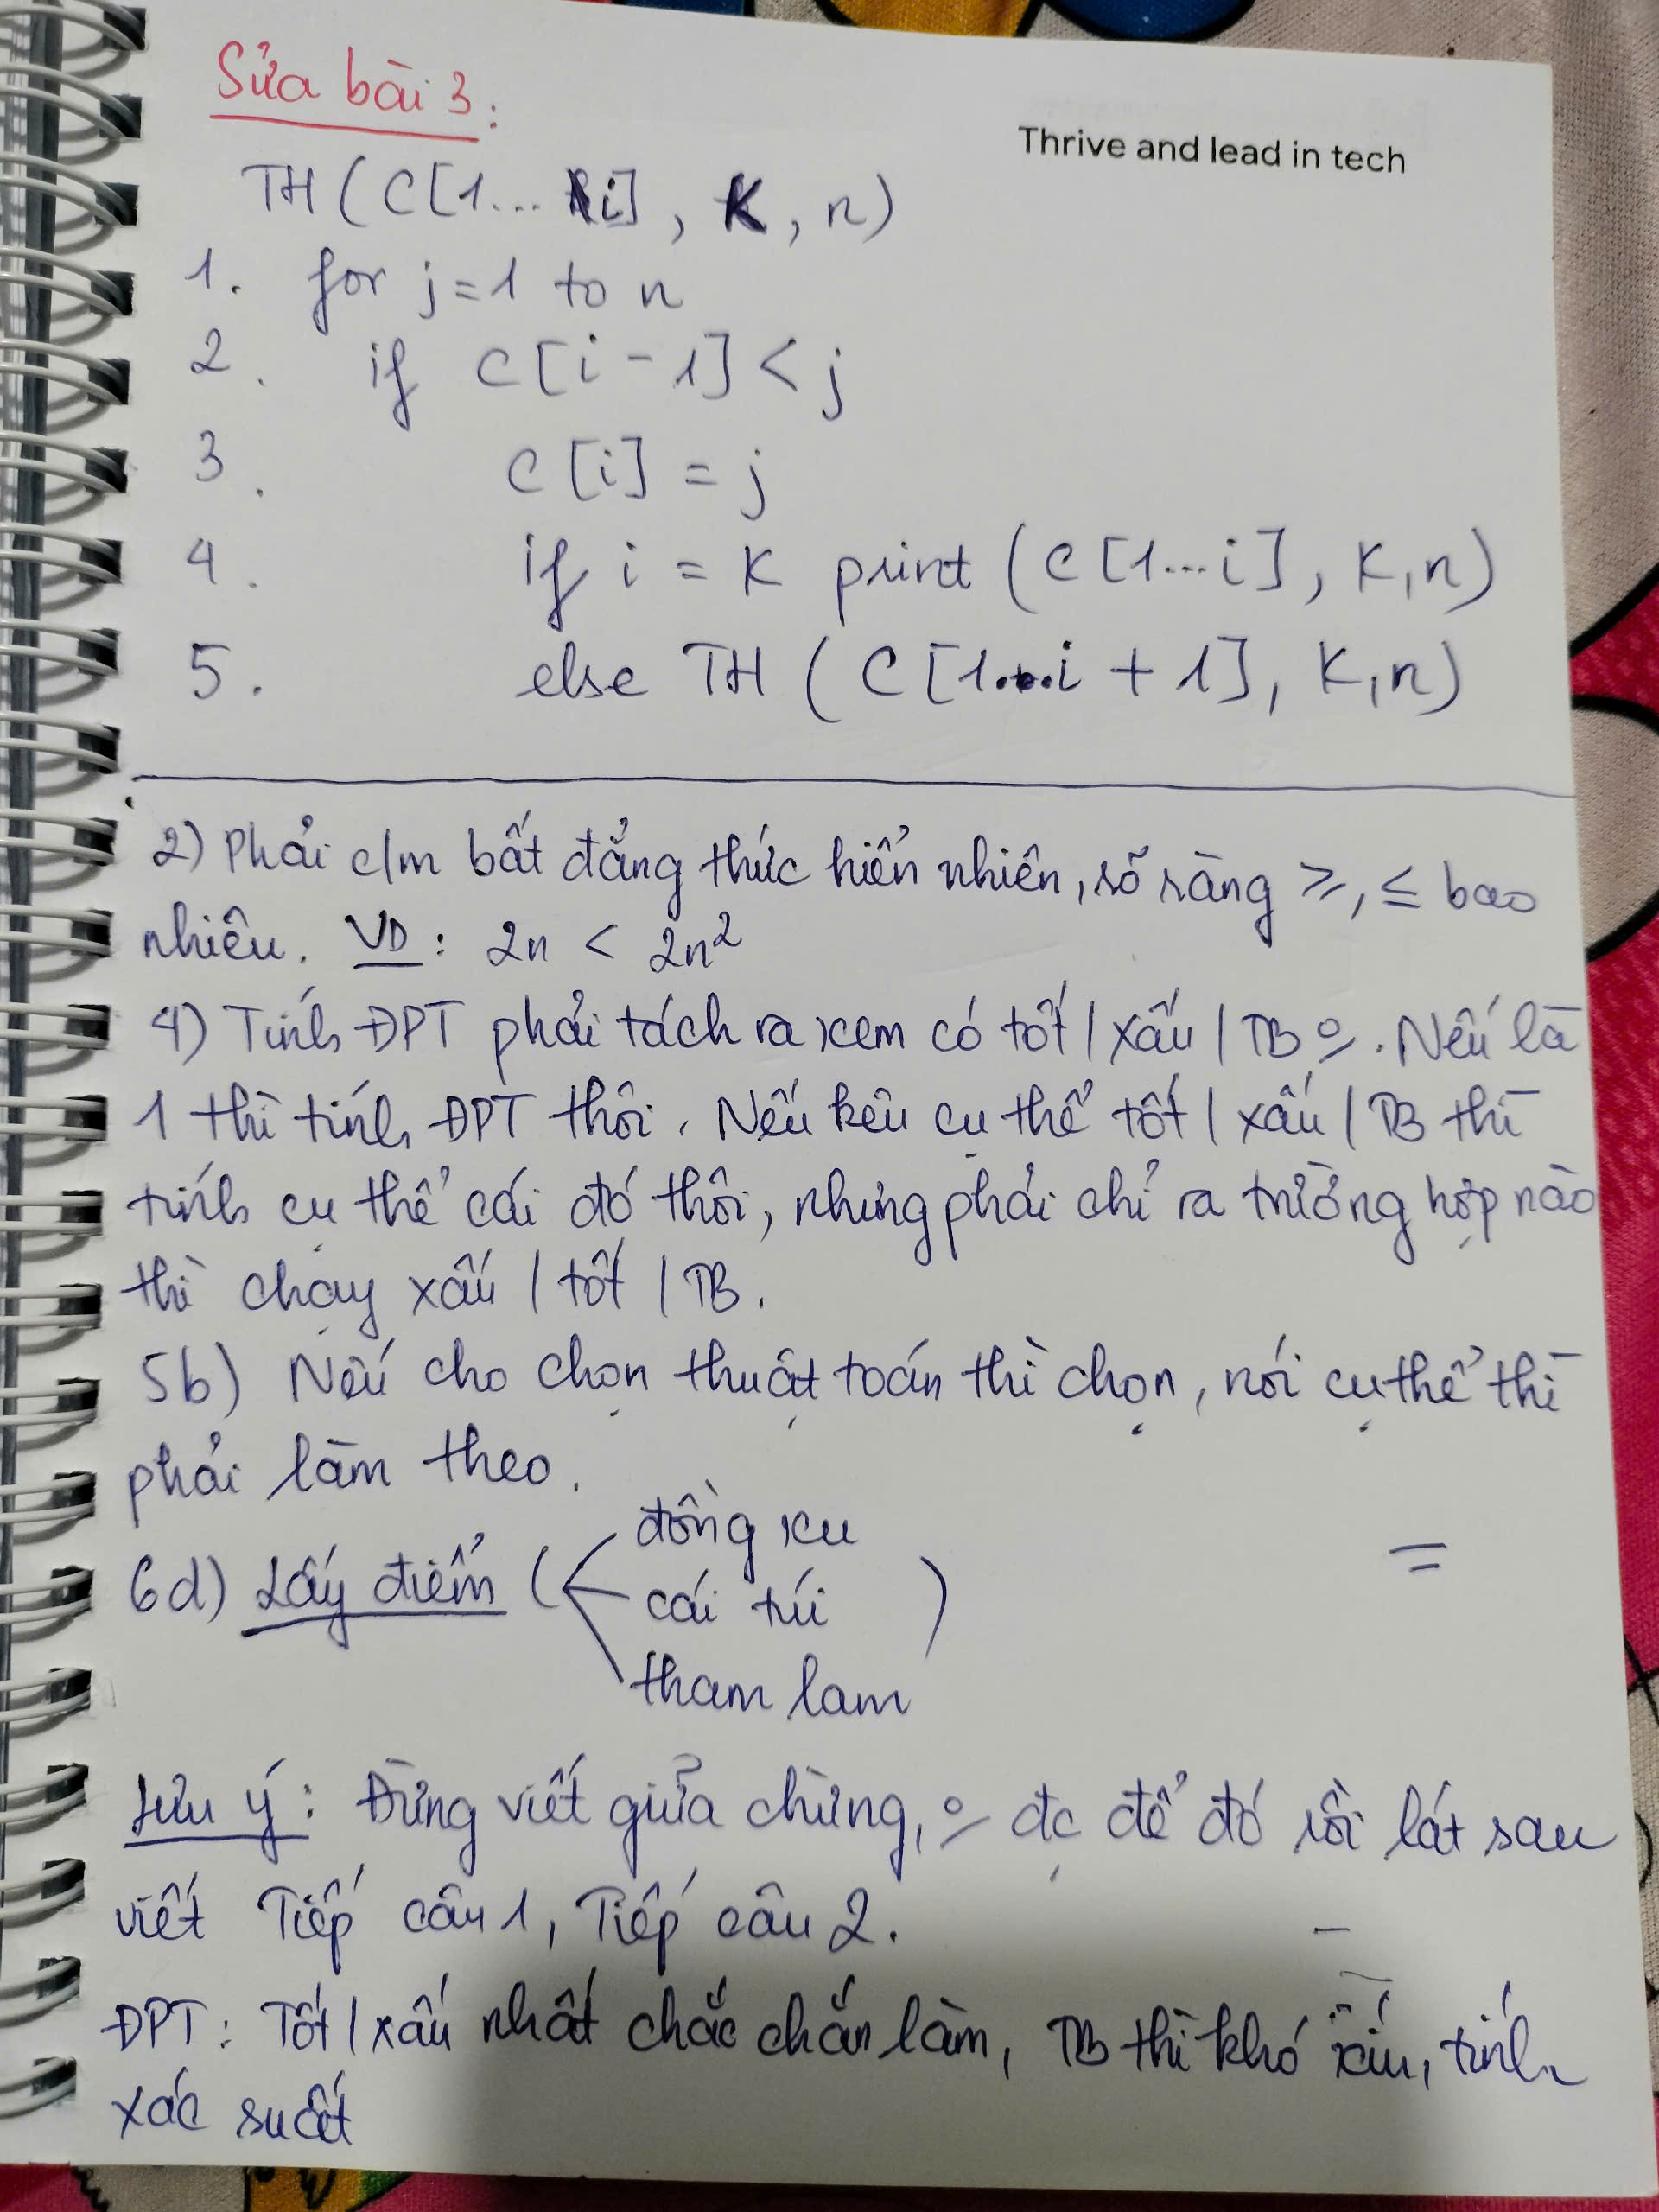 Sửa bài 3:
Thrive and lead in tech
TH (C[1... i], K, n)
1. for j = 1 to n
2. if C[i - 1] < j
3. C[i] = j
4. if i = K print (C[1...i], K, n)
5. else TH (C[1...i + 1], K, n)
2) Phải c/m bất đẳng thức hiển nhiên, rõ ràng ≥, ≤ bao
nhiêu. VD: 2n < 2n²
4) Tính ĐPT phải tách ra xem có tốt / xấu / TB o. Nếu là
1 thì tính ĐPT thôi. Nếu kêu cụ thể tốt / xấu / TB thì
tính cụ thể cái đó thôi, nhưng phải chỉ ra trường hợp nào
thì chạy xấu / tốt / TB.
5b) Nếu cho chọn thuật toán thì chọn, nói cụ thể thì
phải làm theo.
6d) Lấy điểm ( đồng xu
cái túi )
tham lam
Lưu ý: Đừng viết giữa chừng, o đc để đó rồi lát sau
viết Tiếp câu 1, Tiếp câu 2.
ĐPT: Tốt / xấu nhất chắc chắn làm, TB thì khó xíu, tính
xác suất